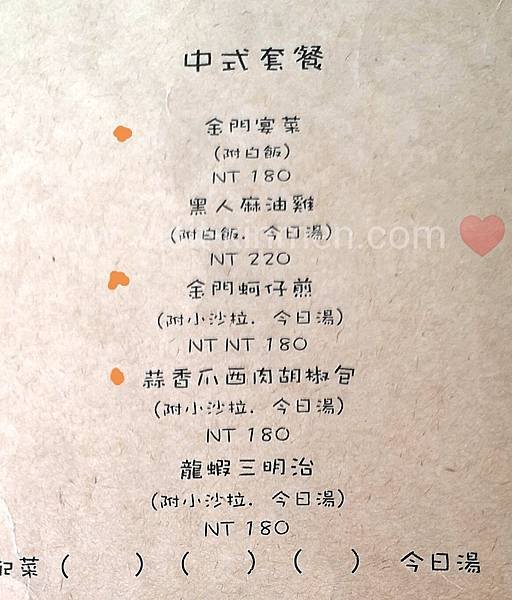 中式套餐
金門宴菜
(附白飯)
NT 180
黑人麻油雞
(附白飯. 今日湯)
NT 220
金門蚵仔煎
(附小沙拉. 今日湯)
NT NT 180
蒜香爪西肉胡椒包
(附小沙拉. 今日湯)
NT 180
龍蝦三明治
(附小沙拉. 今日湯)
NT 180
配菜 (　　) (　　) (　　) 今日湯